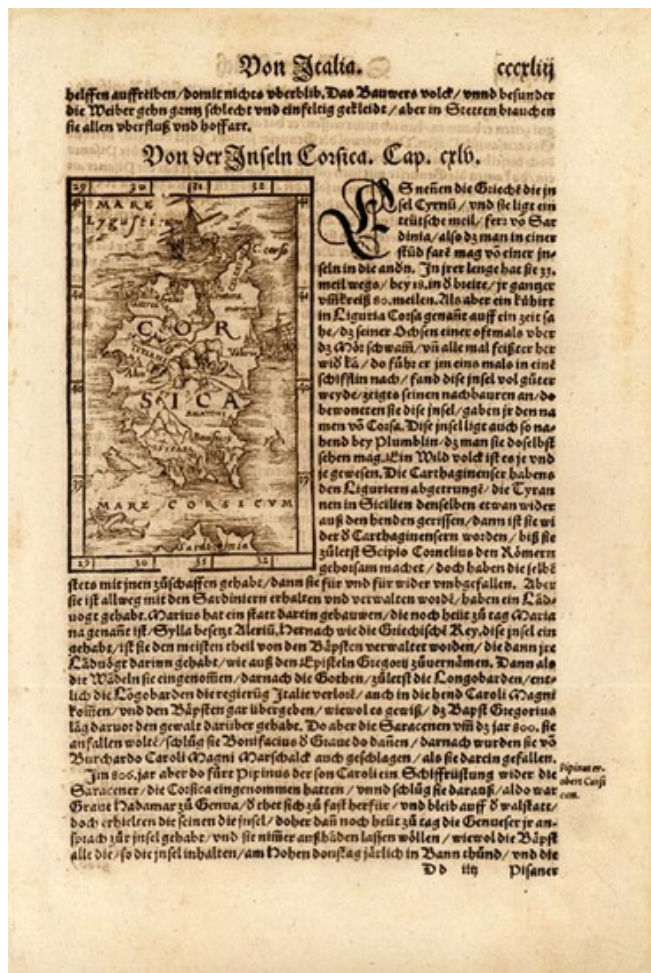 Von Italia. cccxliij
helffen auffreiben/domit nichts vberblib. Das Bauwers volck/ vnnd besunder
die Weiber gehn gantz schlecht vnd einfeltig gekleidt/aber in Stetten brauchen
sie allen vberfluß vnd hoffart.
Von der Inseln Corsica. Cap. cxlv.
29 30 31 32
MARE
Lygusticu
C. corso
COR
SICA
MARE CORSICVM
Sardinia
30 31 32
ES neñen die Griechē die in
sel Cyrnū/ vnd sie ligt ein
teütsche meil/ ferr vō Sar
dinia/also dz man in einer
stūd farē mag vō einer in-
seln in die andn. In jrer lenge hat sie 33.
meil wegs/ bey 18. in d breite/ jr gantzer
vm̄kreiß 80. meilen. Als aber ein kühirt
in Liguria Corsa genañt auff ein zeit sa
he/dz seiner Ochsen einer oftmals vber
dz Mör schwam̄/ vñ alle mal feißter her
wid kā/ do führ er jm eins mals in einē
schifflin nach/ fand dise insel vol gůter
weyde/zeigts seinen nachbauren an/do
bewoneten sie dise jnsel/ gaben jr den na
men vō Corsa. Dise jnsel ligt auch so na-
hend bey Plumblin/dz man sie doselbst
sehen mag. Ein Wild volck ist es je vnd
je gewesen. Die Carthaginenser habens
den Liguriern abgetrungē/ die Tyran
nen in Sicilien denselben etwan wider
auß den henden gerissen/dann ist sie wi
der d Carthaginensern worden/ biß sie
zůletst Scipio Cornelius den Römern
gehorsam machet/ doch haben die selbē
stets mit jnen zůschaffen gehabt/dann sie für vnd für wider vmbgefallen. Aber
sie ist allweg mit den Sardiniern erhalten vnd verwalten wordē/haben ein Lād-
uogt gehabt. Marius hat ein statt darein gebauwen/die noch heüt zů tag Maria
na genañt ist/Sylla besetzt Aleriū. Hernach wie die Griechischē Key. dise jnsel ein
gehabt/ist sie den meisten theil von den Bäpsten verwaltet worden/die dann jre
Lādvögt darinn gehabt/wie auß den Episteln Gregorij zůuernämen. Dann als
die Wādeln sie eingenom̄en/darnach die Gothen/zůletst die Longobarden/ent-
lich die Lōgobarden die regierūg Italie verlorē/auch in die hend Caroli Magni
kom̄en/vnd den Bäpsten gar übergeben/ wiewol es gewiß/dz Bapst Gregorius
lāg daruor den gewalt darüber gehabt. Do aber die Saracenen vm̄ dz jar 800. sie
anfallen woltē/schlůg sie Bonifacius d Graue do dañen/ darnach wurden sie vō
Burchardo Caroli Magni Marschalck auch geschlagen/als sie darein gefallen.
Im 806. jar aber do fůrt Pipinus der son Caroli ein Schiffrüstung wider die
Saracener/die Corsica eingenommen hatten / vnnd schlůg sie darauß/aldo war
Graue Hadamar zů Genua/d thet sich zů fast herfür/ vnd bleib auff d walstatt/
doch erhielten die seinen die jnsel/ doher dañ noch heüt zů tag die Genueser jr an-
sprach zůr jnsel gehabt/ vnd sie nim̄er außhāden lassen wöllen / wiewol die Bäpst
alle die/so die jnsel inhalten/am Hohen donstag järlich in Bann thůnd/ vnd die
Pipinus er-
obert Corsi
cam.
D d iij Pisaner